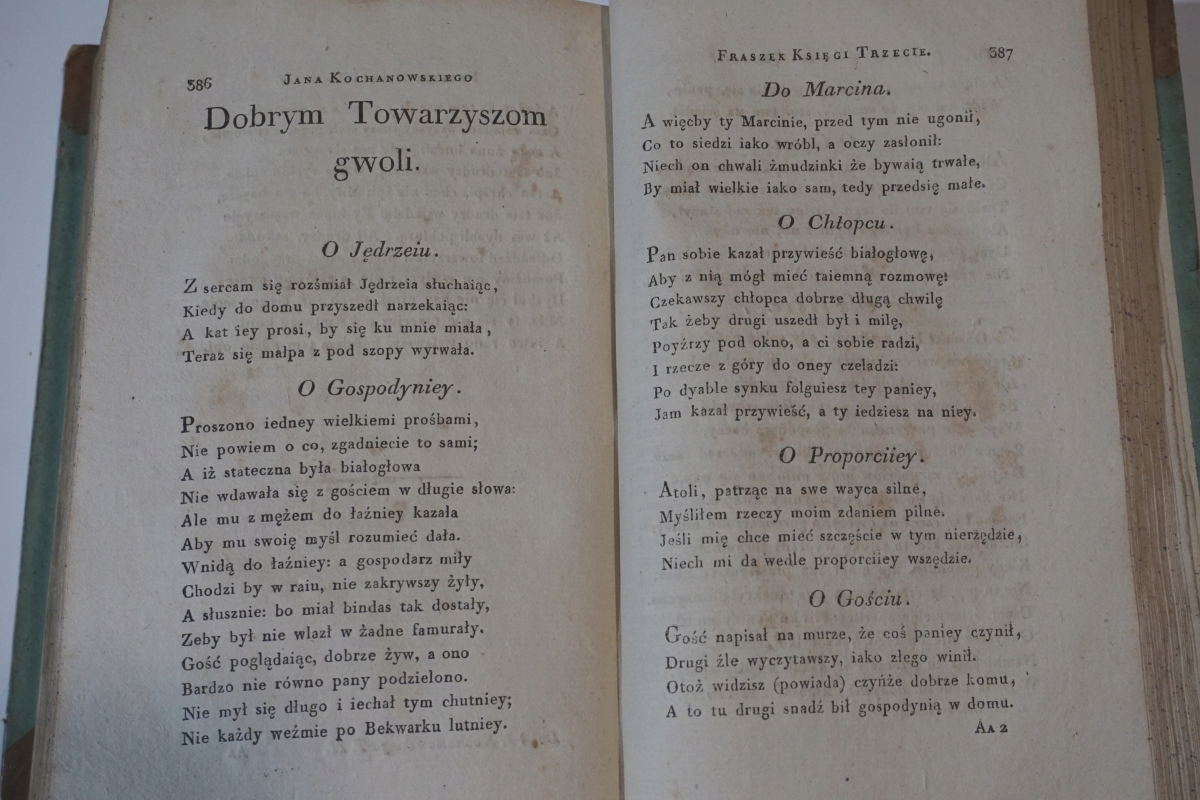 386
JANA KOCHANOWSKIEGO
Dobrym Towarzyszom
gwoli.
O Jędrzeiu.
Z sercam się rozśmiał Jędrzeia słuchaiąc,
Kiedy do domu przyszedł narzekaiąc:
A kat iey prosi, by się ku mnie miała,
Teraz się małpa z pod szopy wyrwała.
O Gospodyniey.
Proszono iedney wielkiemi prośbami,
Nie powiem o co, zgadniecie to sami;
A iż stateczna była białogłowa
Nie wdawała się z gościem w długie słowa:
Ale mu z mężem do łaźniey kazała
Aby mu swoię myśl rozumieć dała.
Wnidą do łaźniey: a gospodarz miły
Chodzi by w raiu, nie zakrywszy żyły,
A słusznie: bo miał bindas tak dostały,
Zeby był nie wlazł w żadne famurały.
Gość poglądaiąc, dobrze żyw, a ono
Bardzo nie równo pany podzielono.
Nie mył się długo i iechał tym chutniey;
Nie każdy weźmie po Bekwarku lutniey.
FRASZEK KSIĘGI TRZECIE.
387
Do Marcina.
A więcby ty Marcinie, przed tym nie ugonił,
Co to siedzi iako wróbl, a oczy zasłonił:
Niech on chwali żmudzinki że bywaią trwałe,
By miał wielkie iako sam, tedy przedsię małe.
O Chłopcu.
Pan sobie kazał przywieść białogłowę,
Aby z nią mógł mieć taiemną rozmowę:
Czekawszy chłopca dobrze długą chwilę
Tak żeby drugi uszedł był i milę,
Poyźrzy pod okno, a ci sobie radzi,
I rzecze z góry do oney czeladzi:
Po dyable synku folguiesz tey paniey,
Jam kazał przywieść, a ty iedziesz na niey.
O Proporciiey.
Atoli, patrząc na swe wayca silne,
Myśliłem rzeczy moim zdaniem pilne.
Jeśli mię chce mieć szczęście w tym nierzędzie,
Niech mi da wedle proporciiey wszędzie.
O Gościu.
Gość napisał na murze, że coś paniey czynił,
Drugi źle wyczytawszy, iako złego winił.
Otoż widzisz (powiada) czyńże dobrze komu,
A to tu drugi snadź bił gospodynią w domu.
AA 2